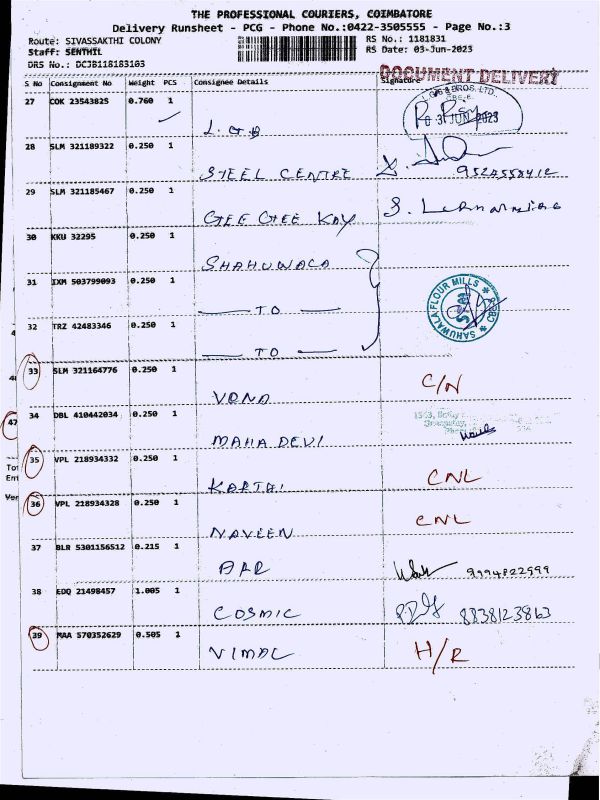 THE PROFESSIONAL COURIERS, COIMBATORE
Delivery Runsheet - PCG - Phone No.:0422-3505555 - Page No.:3
Route: SIVASSAKTHI COLONY RS No.: 1181831
Staff: SENTHIL RS Date: 03-Jun-2023
DRS No.: DCJB118183103
DOCUMENT DELIVERY
S No Consignment No Weight PCS Consignee Details Signature
27 COK 23543825 0.760 1
L.G.B
L.G.B & BROS. LTD.
03 JUN 2023
28 SLM 321189322 0.250 1
STEEL CENTRE
29 SLM 321185467 0.250 1
GEE GEE KAY
30 KKU 32295 0.250 1
SHAHUWALA
31 IXM 503799093 0.250 1
TO
SAHUWALA FLOUR MILLS
32 TRZ 42483346 0.250 1
TO
33 SLM 321164776 0.250 1
VONA C/N
34 DBL 410442034 0.250 1
MAHA DEVI
47
35 VPL 218934332 0.250 1
KARTHI CNL
36 VPL 218934328 0.250 1
NAVEEN CNL
37 BLR 5301156512 0.215 1
AAR 9994822999
38 EDQ 21498457 1.005 1
COSMIC 8838123863
39 MAA 570352629 0.505 1
VIMAL H/R